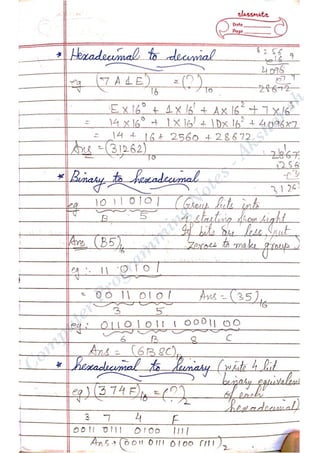 classmate
Date
Page
* Hexadecimal to decimal
eg (7A1E)16 = (?)10
E×16⁰ + 1×16¹ + A×16² + 7×16³
= 14×16⁰ + 1×16¹ + 10×16² + 4096×7
= 14 + 16 + 2560 + 28672
Ans = (31262)10
4096
28672
* Binary to hexadecimal
eg 10110101 (Group bits into
B 5 4 starting from right
If bits are less, put
Ans (B5)16 zeroes to make group)
eg:- 110101
= 0011 0101 Ans = (35)16
3 5
eg: 0110101110001100
6 B 8 C
Ans = (6B8C)16
* hexadecimal to binary (write 4 bit
binary equivalent
eg) (374F)16 = (?)2 of each
hexadecimal)
3 7 4 F
0011 0111 0100 1111
Ans = (0011 0111 0100 1111)2
Computer Programming Notes - Aksh